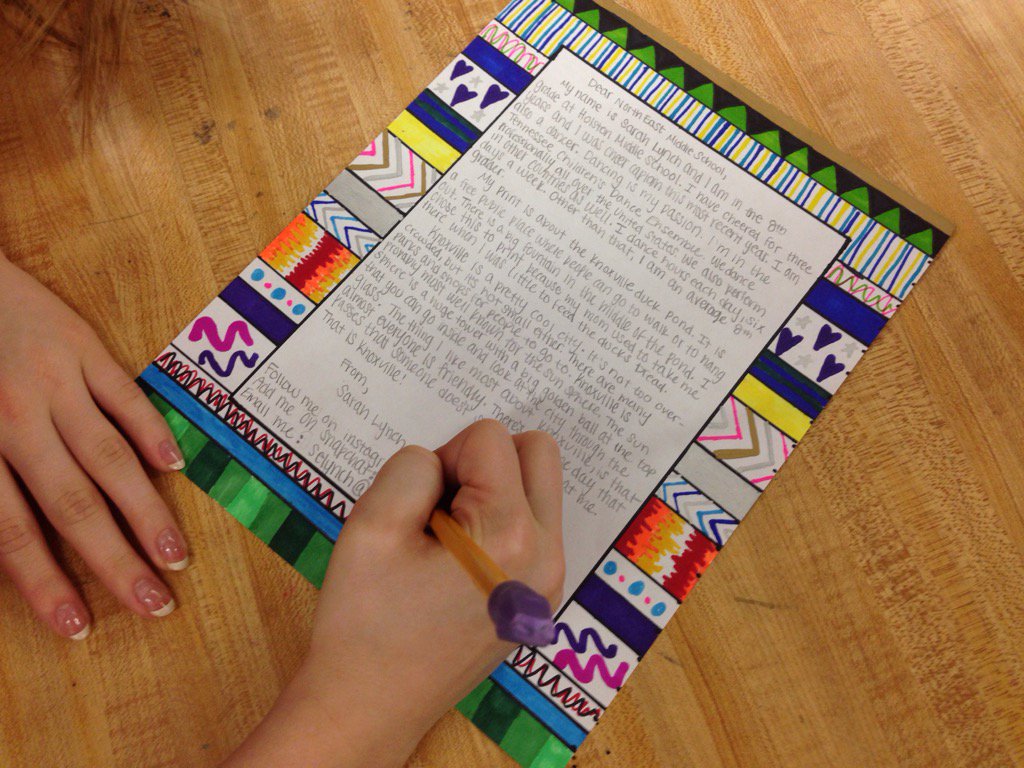 Dear North East Middle School,
My name is Sarah Lynch and I am in the 8th
grade at Holston Middle School. I have cheered for three
years and I was cheer captain this most recent year. I am
also a dancer. Dancing is my passion. I'm in the
Tennessee Children's Dance Ensemble. We dance
professionally all over the United States. We also perform
in other countries as well. I dance hours each day, six
days a week. Other than that, I am an average 8th
grader.
My print is about the Knoxville duck pond. It is
a free public place where people can go to walk or to hang
out. There is a big fountain in the middle of the pond. I
chose this to print because my mom used to take me
there when I was little to feed the ducks bread.
Knoxville is a pretty cool city. It's not too over-
crowded, but it is not small either. There are many
parks and shops for people to go to. Knoxville is
probably most well known for the sun sphere. The sun
sphere is a huge tower with a big golden ball at the top
that you can go inside and look at the city through the
glass. The thing I like most about Knoxville is that
almost everyone is friendly. There's
passes that someone doesn't day that
That is Knoxville! at me.
From,
Sarah Lynch
Follow me on Instag
Add me on Snapchat:
Email me: selynch@